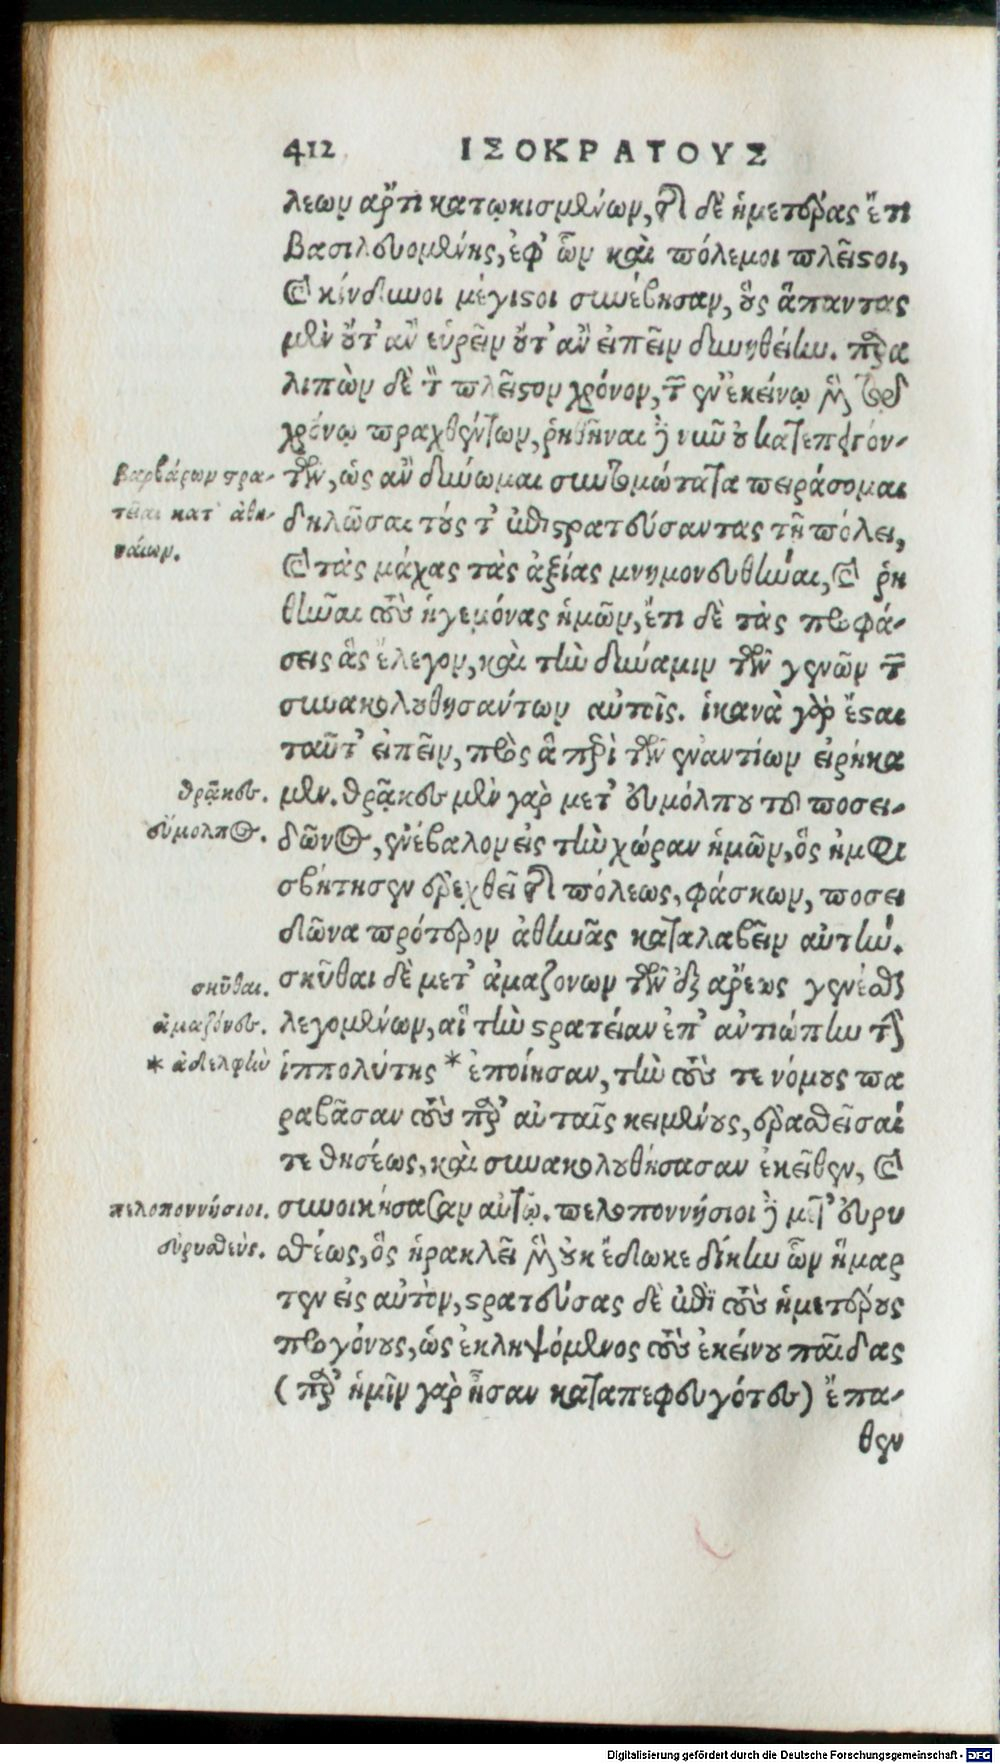 412 ΙΣΟΚΡΑΤΟΥΣ
λεων ἄρτι κατῳκισμένων, τῆς δὲ ἡμετέρας ἔτι
βασιλευομένης, ἐφ' ὧν καὶ πόλεμοι πλεῖςοι,
καὶ κίνδυνοι μέγιςοι συνέβησαν, οὓς ἅπαντας
μὲν οὔτ' ἂν εὑρεῖν οὔτ' ἂν εἰπεῖν δυνηθείην. παρα
λιπὼν δὲ τὸν πλεῖςον χρόνον, τῶν ἐν ἐκείνῳ μὲν τῷ
χρόνῳ πραχθέντων, ῥηθῆναι δὲ νῦν οὐ κατεπειγόν-
των, ὡς ἂν δύνωμαι συντομώτατα πειράσομαι
δηλῶσαι τούς τ' ἐπιςρατεύσαντας τῇ πόλει,
καὶ τὰς μάχας τὰς ἀξίας μνημονευθῆναι, καὶ ῥη
θῆναι τοὺς ἡγεμόνας ἡμῶν, ἔτι δὲ τὰς προφά-
σεις ἃς ἔλεγον, καὶ τὴν δύναμιν τῶν γενῶν τῶν
συνακολουθησάντων αὐτοῖς. ἱκανὰ γὰρ ἔςαι
ταῦτ' εἰπεῖν, πρὸς ἃ περὶ τῶν ἐναντίων εἰρήκα
μεν. θρᾷκες μὲν γὰρ μετ' εὐμόλπου τοῦ ποσει-
δῶνος, ἐνέβαλον εἰς τὴν χώραν ἡμῶν, ὃς ἠμφι
σβήτησεν ἐρεχθεῖ τῆς πόλεως, φάσκων, ποσει
δῶνα πρότερον ἀθηνᾶς καταλαβεῖν αὐτήν.
σκῦθαι δὲ μετ' ἀμαζόνων τῶν ἐξ ἄρεως γενέσθαι
λεγομένων, αἳ τὴν ςρατείαν ἐπ' ἀντιόπην τῆς
ἱππολύτης * ἐποίησαν, τὴν τούς τε νόμους πα
ραβᾶσαν τοὺς παρ' αὐταῖς κειμένους, ἐρασθεῖσαί
τε θησέως, καὶ συνακολουθήσασαν ἐκεῖθεν, καὶ
συνοικήσασαν αὐτῷ. πελοποννήσιοι δὲ μετ' εὐρυ
σθέως, ὃς ἡρακλεῖ μὲν οὐκ ἔδωκε δίκην ὧν ἥμαρ
τεν εἰς αὐτὸν, ςρατεύσας δὲ ἐπὶ τοὺς ἡμετέρους
προγόνους, ὡς ἐκληψόμενος τοὺς ἐκείνου παῖδας
(παρ' ἡμῖν γὰρ ἦσαν καταπεφευγότες) ἔπα-
θεν
βαρβάρων στρα-
τεῖαι κατ' ἀθη-
ναίων.
θρᾷκες.
εὔμολπος.
σκῦθαι.
ἀμαζόνες.
* ἀδελφὴν
πελοποννήσιοι.
εὐρυσθεύς.
Digitalisierung gefördert durch die Deutsche Forschungsgemeinschaft - DFG